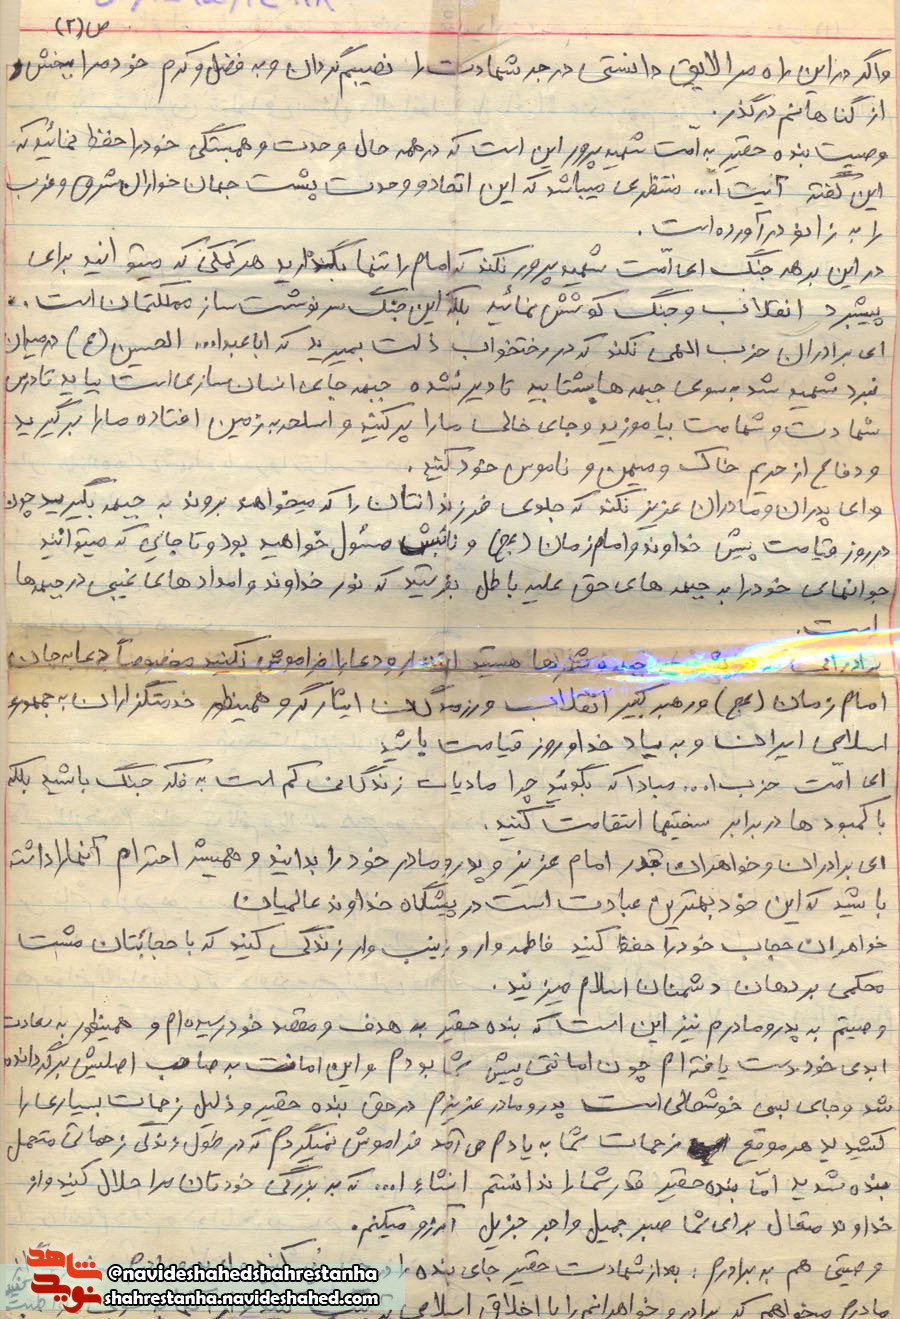 ص(۲)
واگر در این راه مرا لایق دانستی درجه شهادت را نصیبم گردان و به فضل و کرم خود مرا ببخش و
از گناهانم درگذر.
وصیت بنده حقیر به امّت شهیدپرور این است که در همه حال وحدت و همبستگی خود را حفظ نمائید که
این گفته آیت ا... منتظری میباشد که این اتحاد و وحدت پشت جهان خواران شرق و غرب
را به زانو درآورده است.
در این برهه جنگ ای امّت شهیدپرور نکند که امام را تنها بگذارید هر کمکی که میتوانید برای
پیشبرد انقلاب و جنگ کوشش نمائید بلکه این جنگ سرنوشت ساز مملکتمان است...
ای برادران حزب الهی نکند که در رختخواب ذلت بمیرید که اباعبدا... الحسین (ع) در میدان
نبرد شهید شد به سوی جبهه ها بشتابید تا دیر نشده جبهه جای انسان سازی است بیاید تا درس
شهادت و شهامت بیاموزید و جای خالی ما را پر کنید و اسلحه به زمین افتاده ما را برگیرید
و دفاع از حریم خاک و میهن و ناموس خود کنید.
و ای پدران و مادران عزیز نکند که جلوی فرزندانتان را که میخواهند بروند به جبهه بگیرید چون
در روز قیامت پیش خداوند و امام زمان (عج) و نائبش مسئول خواهید بود و تا جایی که میتوانید
جوانهای خود را به جبهه های حق علیه باطل بفرستید که نور خداوند و امدادهای غیبی در جبهه ها
است.
برادرانی که در پشت جبهه و شهرها هستید دعا را فراموش نکنید مخصوصاً دعا به جان
امام زمان (عج) و رهبر کبیر انقلاب و رزمندگان ایثارگر و همینطور خدمتگزاران به جمهوری
اسلامی ایران و به یاد خدا و روز قیامت باشید
ای امّت حزب ا... مبادا که بگوئید چرا مادیات زندگانی کم است به فکر جنگ باشید بلکه
با کمبودها در برابر سختیها استقامت کنید.
ای برادران و خواهران قدر امام عزیز و پدر و مادر خود را بدانید و همیشه احترام آنها را داشته
باشید که این خود بهترین عبادت است در پیشگاه خداوند عالمیان
خواهران حجاب خود را حفظ کنید فاطمه وار و زینب وار زندگی کنید که با حجابتان مشت
محکمی بر دهان دشمنان اسلام میزنید.
وصیتم به پدر و مادرم نیز این است که بنده حقیر به هدف و مقصد خود رسیده ام و همینطور به سعادت
ابدی خود دست یافته ام چون امانتی پیش شما بودم و این امانت به صاحب اصلیش برگردانده
شد و جای بسی خوشحالی است پدر و مادر عزیزم در حق بنده حقیر و ذلیل زحمات بسیاری را
کشیدید هر موقع زحمات شما به یادم می آمد فراموش نمیکردم که در طول زندگی زحماتی متحمل
بنده شدید امّا بنده حقیر قدر شما را ندانستم انشاء ا... که به بزرگی خودتان مرا حلال کنید و از
خداوند متعال برای شما صبر جمیل و اجر جزیل آرزو میکنم.
وصیتی هم به برادرم: بعد از شهادت حقیر جای بنده را در
مادرم میخواهم که برادر و خواهرانم را با اخلاق اسلامی
شاهد
نوید
@navideshahedshahrestanha
shahrestanha.navideshahed.com